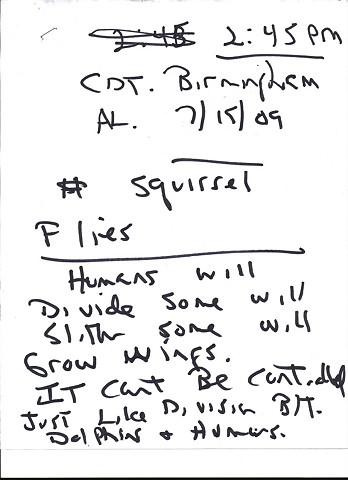 2:45 2:45 pm
CDT. Birmingham
AL. 7/15/09
# squirrel
Flies
Humans will
Divide some will
Slith some will
Grow wings.
IT cant Be
Just Like Division B/T.
Dolphins & Humans.